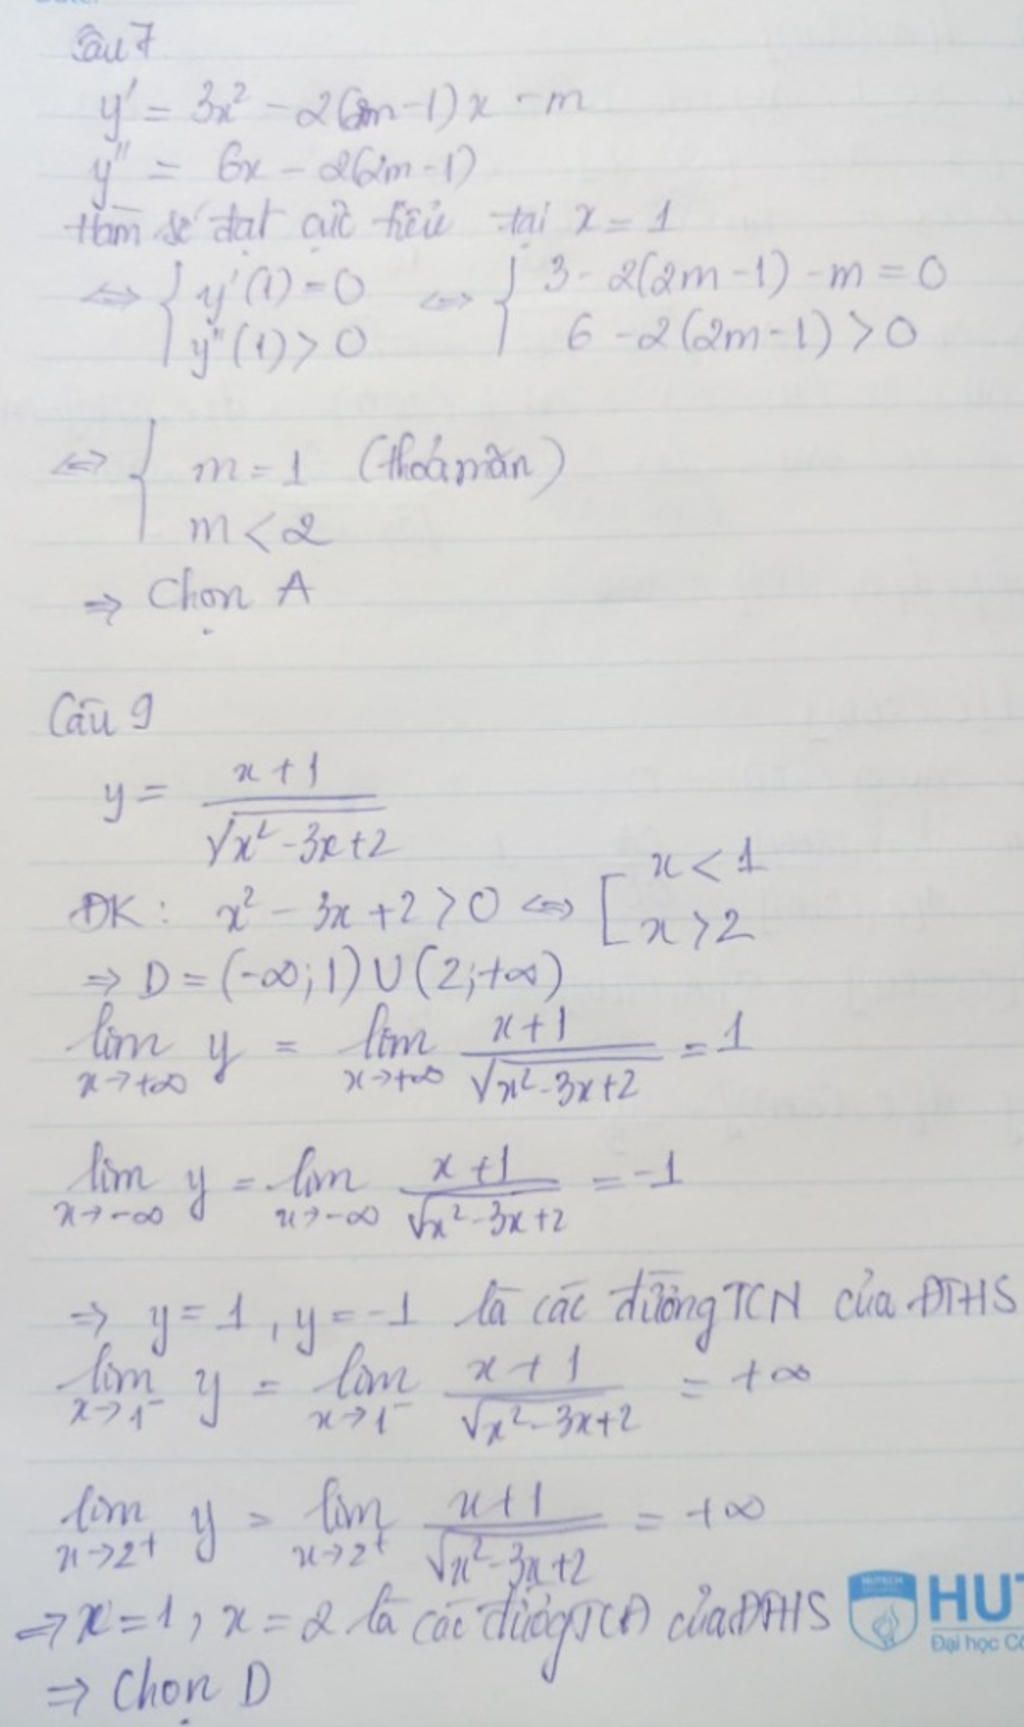 Câu 7
y' = 3x² - 2(2m-1)x - m
y'' = 6x - 2(2m-1)
Hàm số đạt cực tiểu tại x = 1
⇔ { y'(1) = 0 ⇔ { 3 - 2(2m-1) - m = 0
y''(1) > 0 6 - 2(2m-1) > 0
⇔ { m = 1 (thoả mãn)
m < 2
⇒ Chọn A
Câu 9
y = (x+1)/√(x²-3x+2)
ĐK: x² - 3x + 2 > 0 ⇔ [ x < 1
x > 2
⇒ D = (-∞;1) ∪ (2;+∞)
lim x→+∞ y = lim x→+∞ (x+1)/√(x²-3x+2) = 1
lim x→-∞ y = lim x→-∞ (x+1)/√(x²-3x+2) = -1
⇒ y = 1, y = -1 là các đường TCN của ĐTHS
lim x→1⁻ y = lim x→1⁻ (x+1)/√(x²-3x+2) = +∞
lim x→2⁺ y = lim x→2⁺ (x+1)/√(x²-3x+2) = +∞
⇒ x = 1, x = 2 là các đường TCĐ của ĐTHS
⇒ Chọn D
HUTECH
HUT
Đại học Cô